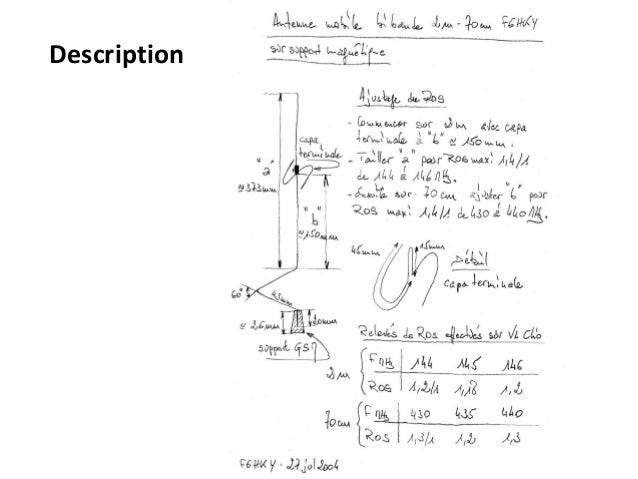 Description
Antenne mobile bi bande 2m - 70cm F6HKY
sur support magnétique
Ajustage du ROS
- Commencer sur 2m avec capa
terminale à "b" ≃ 150mm.
- Tailler "a" pour ROS maxi 1,4/1
de 144 à 146 MHz.
- Ensuite sur 70cm ajuster "b" pour
ROS maxi 1,4/1 de 430 à 440 MHz.
capa
terminale
"a"
≃373mm
"b"
≃150mm
60°
43mm
≃ 26mm
20mm
support GSM
45mm
15mm
Détail
capa terminale
Relevés de ROS effectués sur VL Clio
2m
F MHz 144 145 146
ROS 1,2/1 1,18 1,2
70cm
F MHz 430 435 440
ROS 1,3/1 1,2 1,3
F6HKY - 27 jul 2004